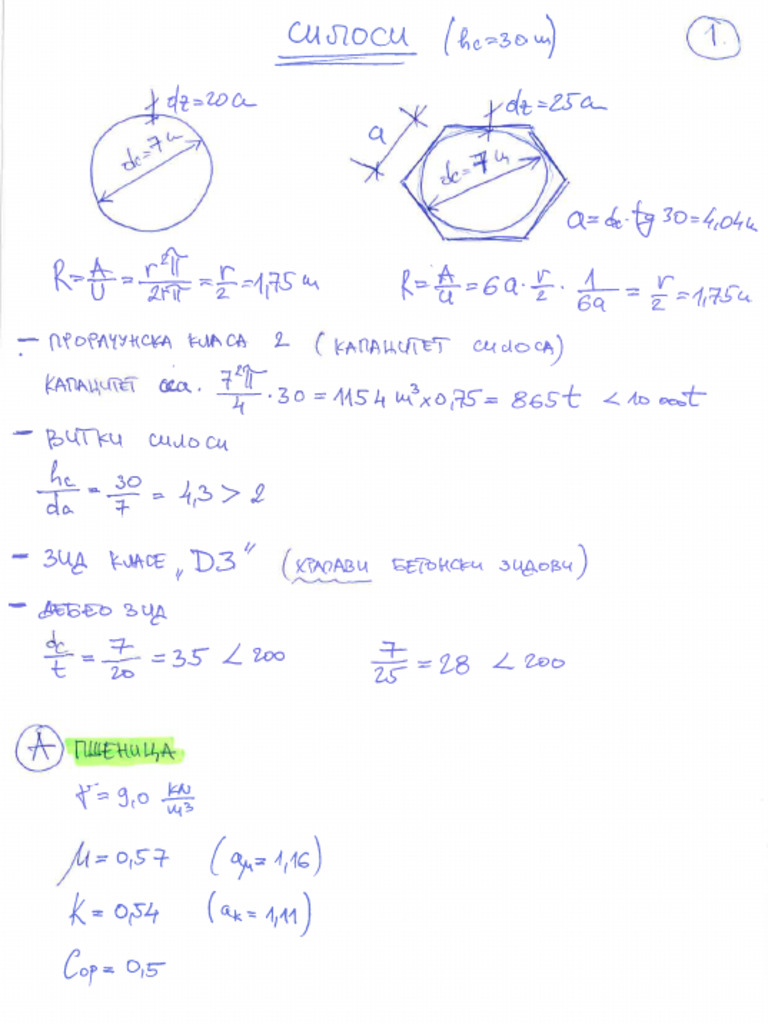 СИЛОСИ (hc=30m) 1.
dz=20cm
dc=7m
a
dz=25cm
dc=7m
a=dc·tg30=4,04m
R=A/U=r²π/2rπ=r/2=1,75m
R=A/U=6a·r/2·1/6a=r/2=1,75m
- ПРОРАЧУНСКА КЛАСА 2 (КАПАЦИТЕТ СИЛОСА)
КАПАЦИТЕТ 7²π/4·30=1154m³×0,75=865t <10000t
- ВИТКИ СИЛОСИ
hc/dc=30/7=4,3>2
- ЗИД КЛАСЕ „D3" (ХРАПАВИ БЕТОНСКИ ЗИДОВИ)
- ДЕБЕО ЗИД
dc/t=7/20=35<200
7/25=28<200
A ПШЕНИЦА
γ=9,0 kN/m³
μ=0,57 (aμ=1,16)
K=0,54 (aK=1,11)
Cop=0,5